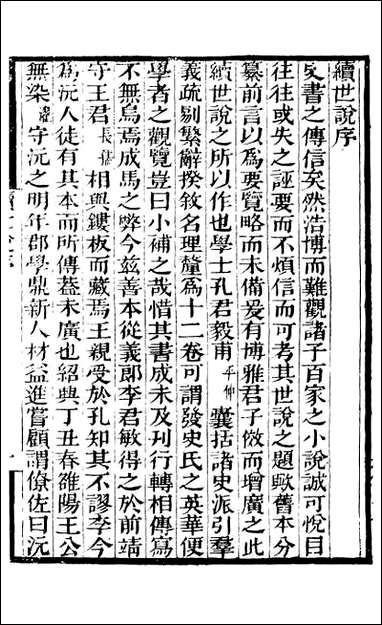 續世說序
史書之傳信矣然浩博而難觀諸子百家之小說誠可悅目
往往或失之誣要而不煩信而可考其世說之題歟舊本分
纂前言以爲要覽略而未備爰有博雅君子傚而增廣之此
續世說之所以作也學士孔君毅甫平仲囊括諸史派引羣
義疏剔繁辭揆敘名理釐爲十二卷可謂發史氏之英華便
學者之觀覽豈曰小補之哉惜其書成未及刊行轉相傳寫
不無烏焉成馬之弊今兹善本從義郎李君敏得之於前靖
守王君長孺相與鏤板而藏焉王親受於孔知其不謬李今
爲沅人徒有其本而所傳葢未廣也紹興丁丑春雒陽王公
無染濯守沅之明年郡學鼎新人材益進嘗顧謂僚佐曰沅